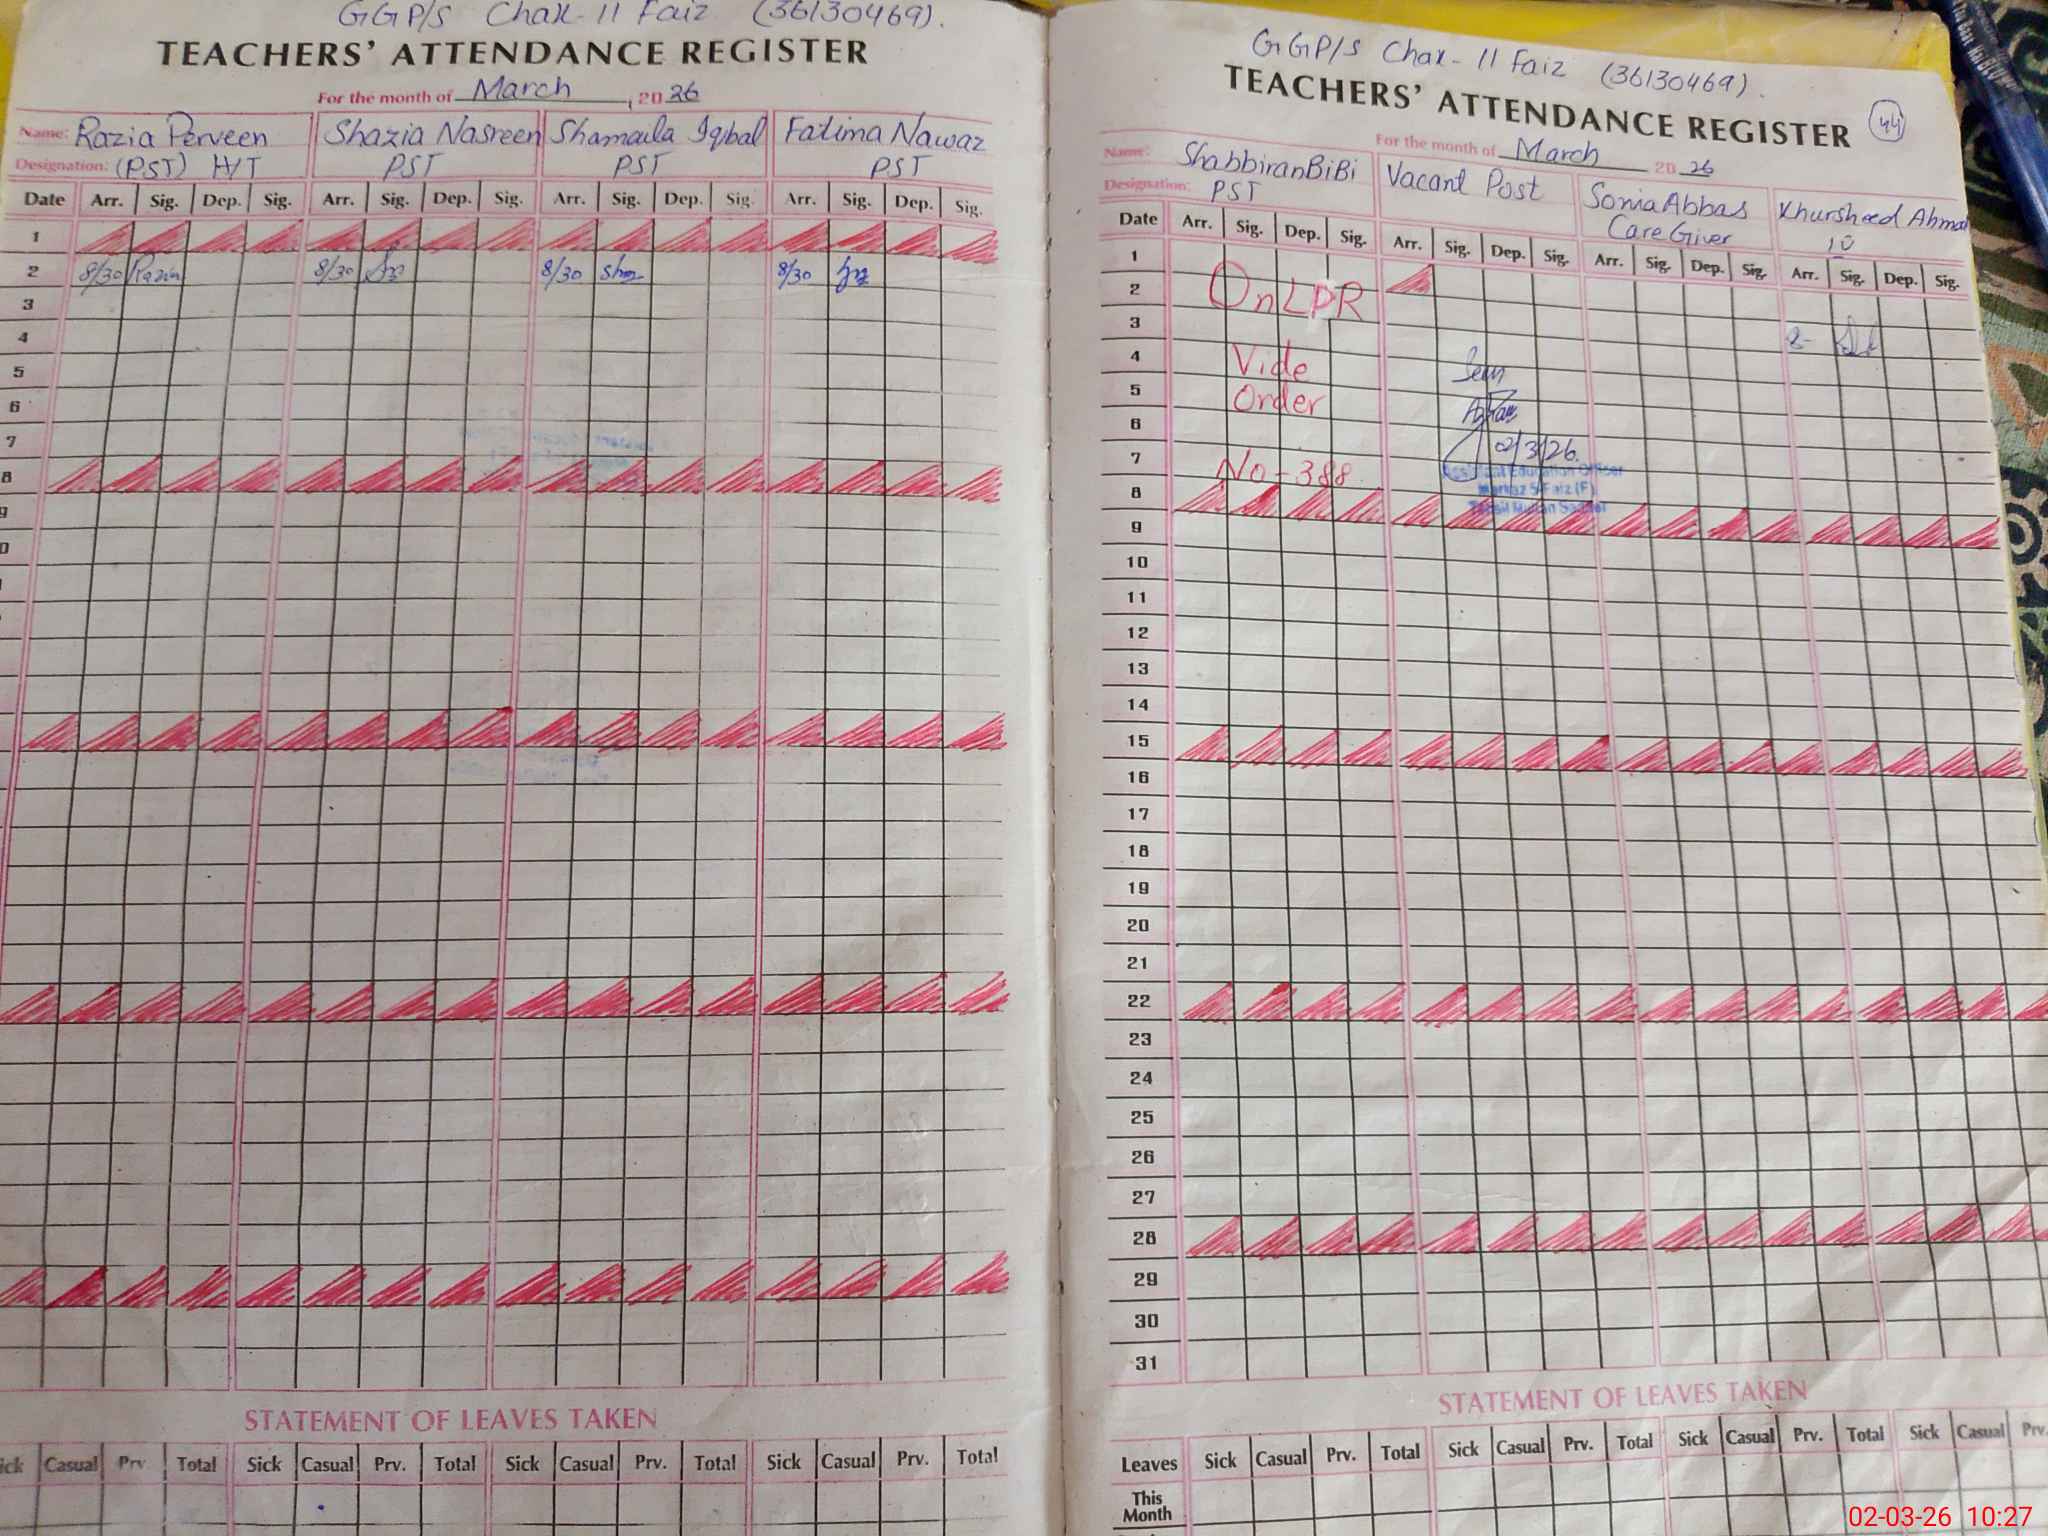 GGP/S Chak-11 Faiz (36130469).
TEACHERS' ATTENDANCE REGISTER
For the month of March, 2026
Name: Razia Perveen Shazia Nasreen Shamaila Iqbal Fatima Nawaz
Designation: (PST) H/T PST PST PST
Date Arr. Sig. Dep. Sig. Arr. Sig. Dep. Sig. Arr. Sig. Dep. Sig. Arr. Sig. Dep. Sig.
1
2 8/30 Razia 8/30 8/30 8/30
3
4
5
6
7
8
STATEMENT OF LEAVES TAKEN
Casual Prv Total Sick Casual Prv. Total Sick Casual Prv. Total Sick Casual Prv. Total
GGP/S Chak-11 Faiz (36130469).
TEACHERS' ATTENDANCE REGISTER
44
For the month of March 2026
Name: Shabbiran BiBi Vacant Post Sonia Abbas Khursheed Ahmad
Designation: PST Care Giver
Date Arr. Sig. Dep. Sig. Arr. Sig. Dep. Sig. Arr. Sig. Dep. Sig. Arr. Sig. Dep. Sig.
1
2 On LPR
3
4 Vide Seen
5 Order
6 02/3/26.
7 No-388
Assistant Education Officer
Markaz 5-Faiz (F)
Tehsil Multan Saddar
8
9
10
11
12
13
14
15
16
17
18
19
20
21
22
23
24
25
26
27
28
29
30
31
STATEMENT OF LEAVES TAKEN
Leaves Sick Casual Prv. Total Sick Casual Prv. Total Sick Casual Prv. Total Sick Casual Prv.
This
Month
02-03-26 10:27